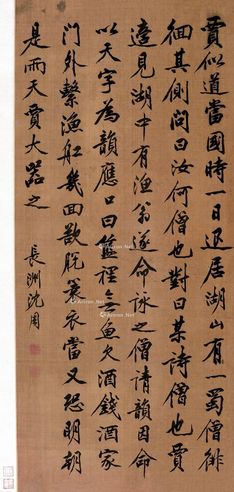 賈似道當國時一日退居湖山有一蜀僧徘
徊其側問曰汝何僧也對曰某詩僧也賈
遠見湖中有漁翁遂命詠之僧請韻因命
以天字為韻應口曰籃裡無魚欠酒錢酒家
門外繫漁船幾回欲脫蓑衣當又恐明朝
是雨天賈大器之
長洲沈周